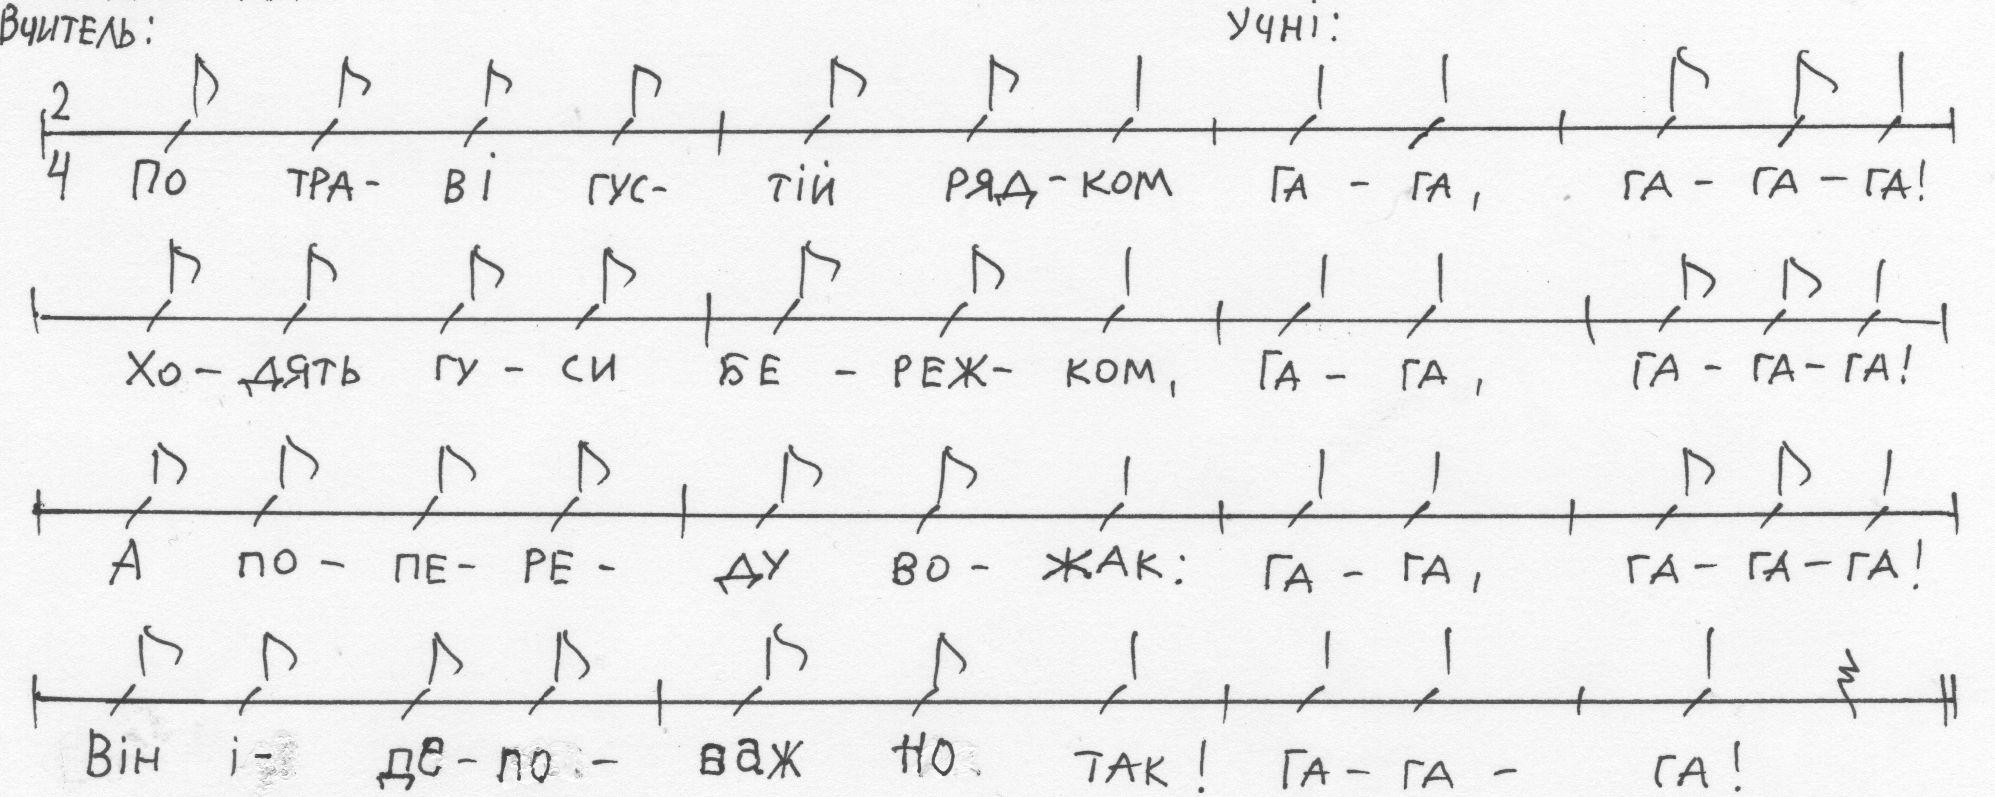 Вчитель: Учні:
2
4 ПО ТРА- ВІ ГУС- ТІЙ РЯД-КОМ ГА - ГА, ГА - ГА - ГА!
ХО - ДЯТЬ ГУ - СИ БЕ - РЕЖ- КОМ, ГА - ГА, ГА - ГА - ГА!
А ПО - ПЕ- РЕ - ДУ ВО - ЖАК: ГА - ГА, ГА - ГА - ГА!
Він і- де- по - важ но ТАК! ГА - ГА - ГА!